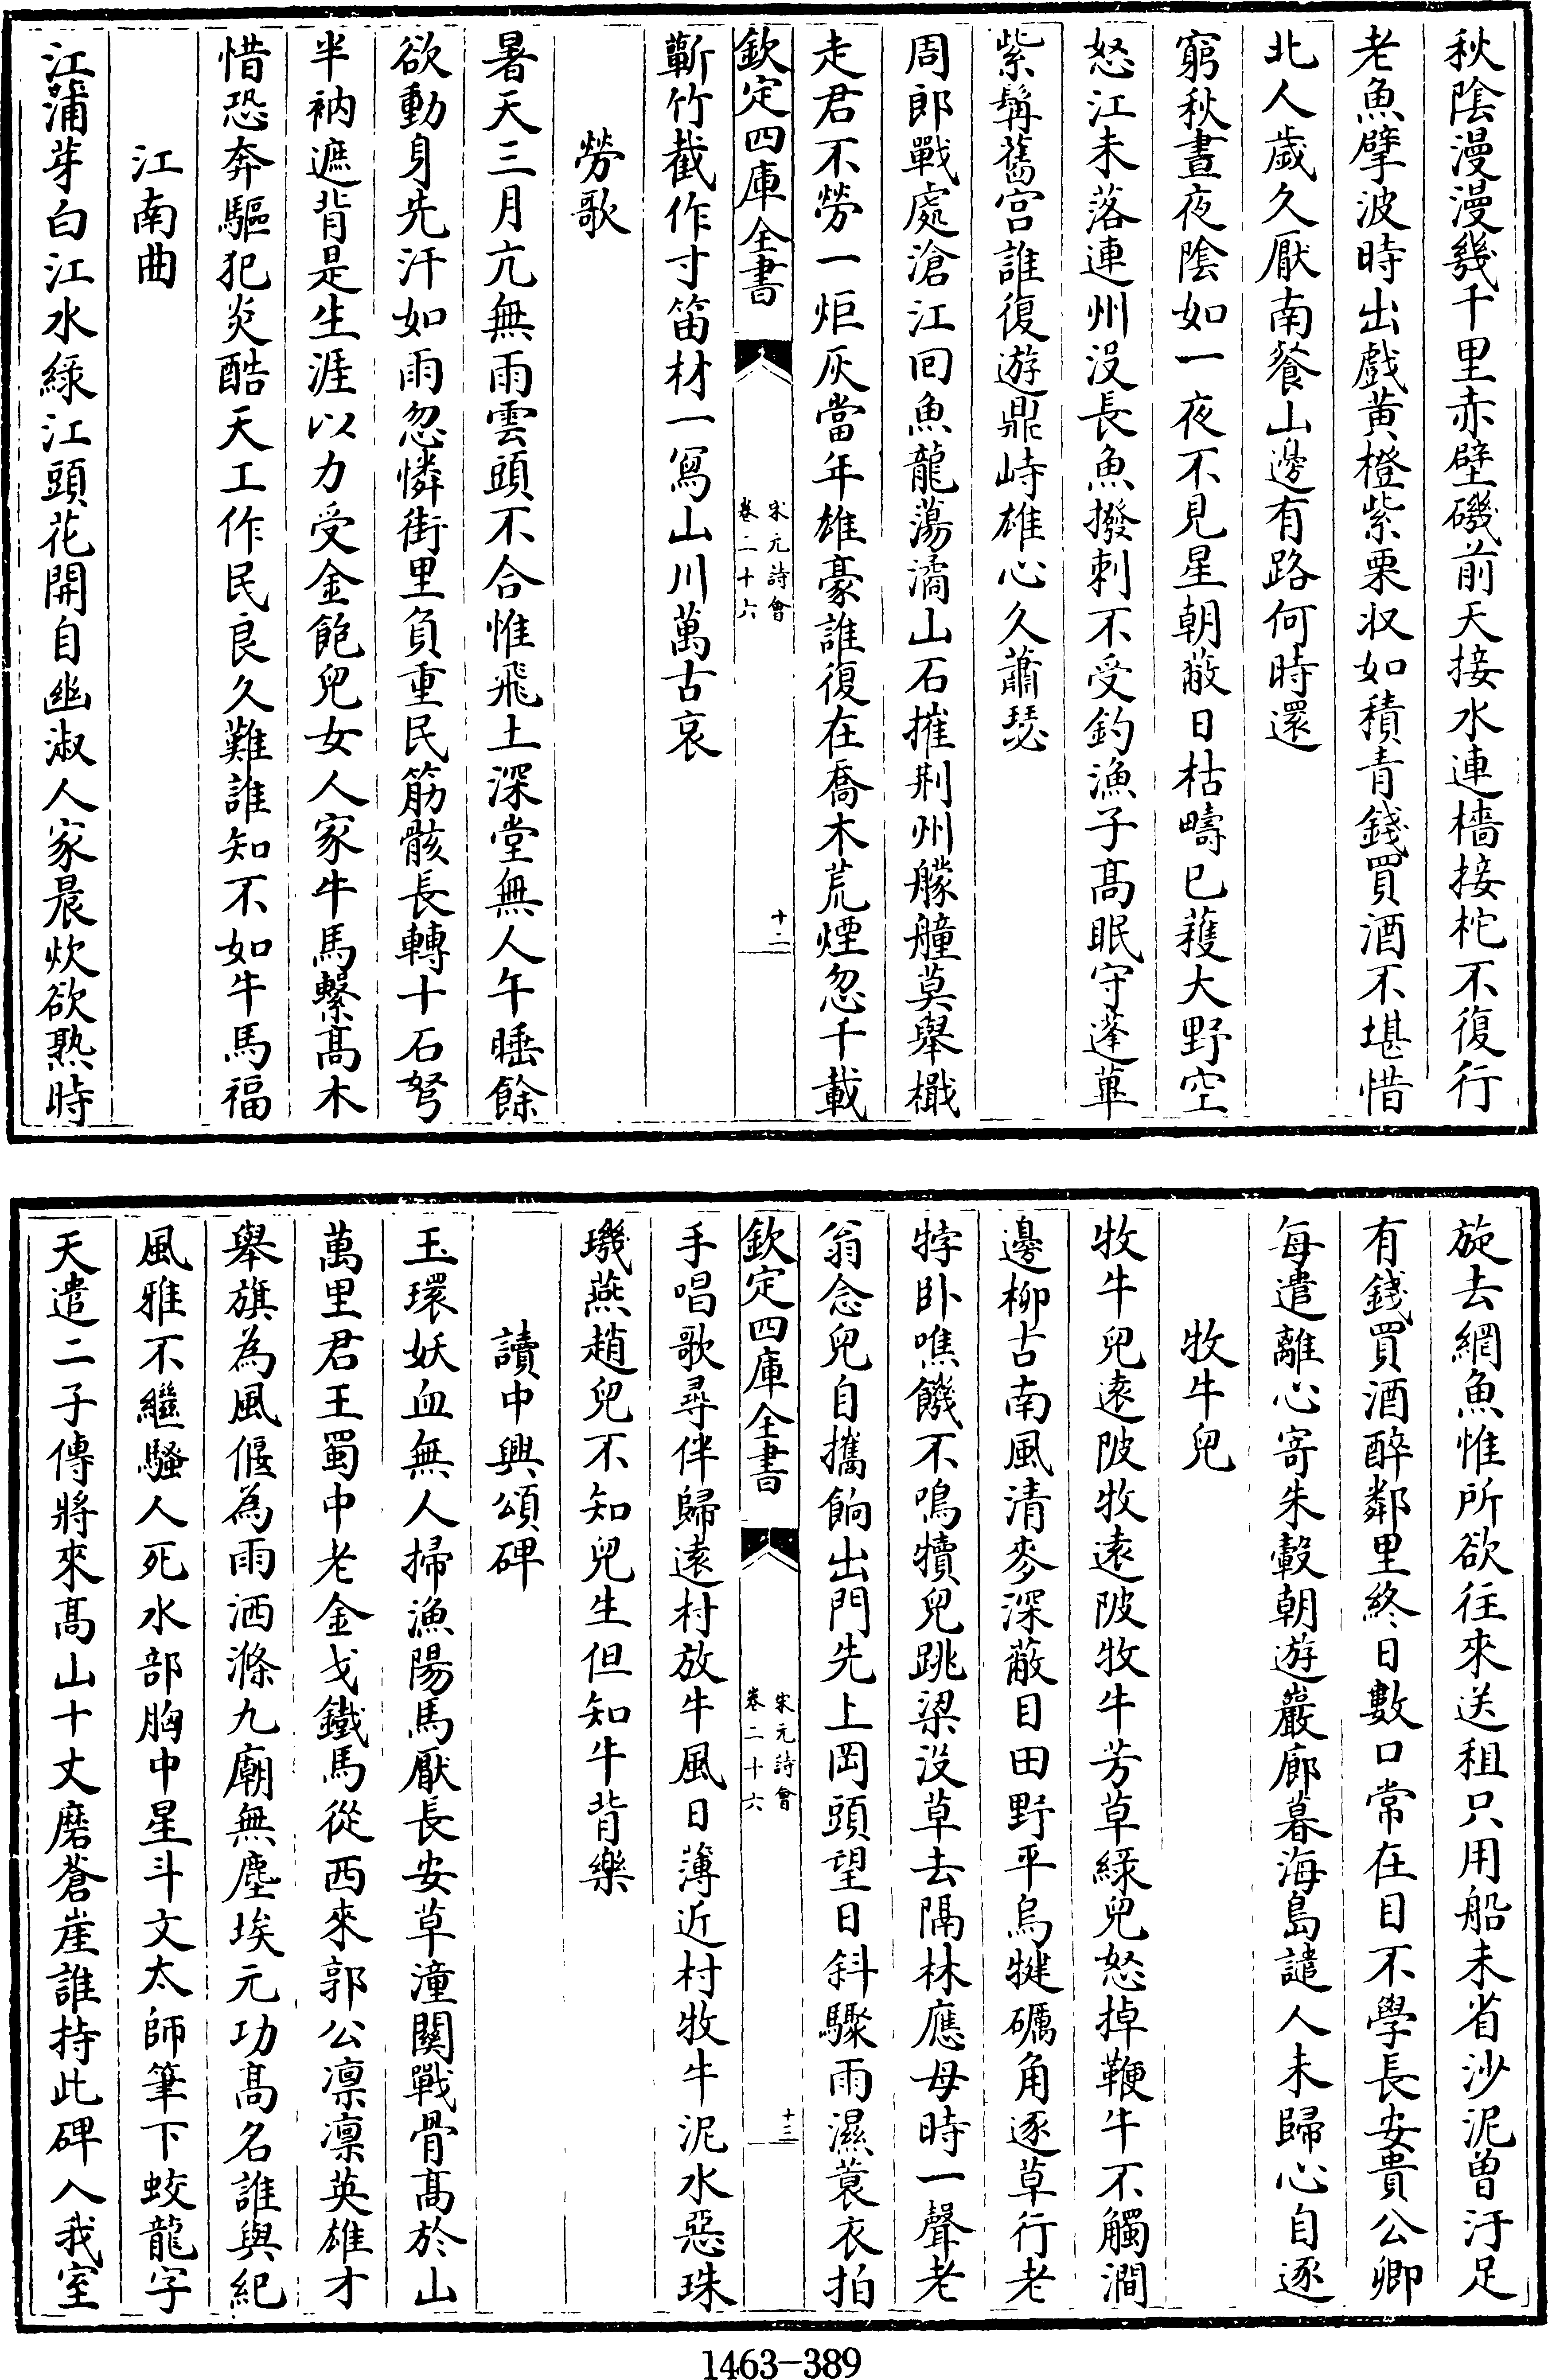 秋陰漫漫幾千里赤壁磯前天接水連檣接柁不復行
老魚擘波時出戲黄橙紫栗収如積青錢買酒不堪惜
北人歲久厭南餐山邊有路何時還
窮秋晝夜陰如一夜不見星朝蔽日枯疇已蓷大野空
怒江未落連州沒長魚撥刺不受釣漁子髙眠守蓬蓽
紫髯舊宫誰復遊鼎峙雄心久蕭瑟
周郎戰處滄江回魚龍蕩潏山石摧荆州艨艟莫舉檝
走君不勞一炬灰當年雄豪誰復在喬木荒煙忽千載
欽定四庫全書
宋元詩會
卷二十六
十二
蘄竹截作寸笛材一寫山川萬古哀
勞歌
暑天三月亢無雨雲頭不合惟飛土深堂無人午睡餘
欲動身先汗如雨忽憐街里負重民筋骸長轉十石弩
半衲遮背是生涯以力受金飽兒女人家牛馬繫髙木
惜恐奔驅犯炎酷天工作民良久難誰知不如牛馬福
江南曲
江蒲芽白江水綠江頭花開自幽淑人家晨炊欲熟時
旋去網魚惟所欲往來送租只用船未省沙泥曽汙足
有錢買酒醉鄰里終日數口常在目不學長安貴公卿
每遣離心寄朱轂朝遊巖廊暮海島譴人未歸心自逐
牧牛兒
牧牛兒逺陂牧逺陂牧牛芳草綠兒怒掉鞭牛不觸澗
邊柳古南風清麥深蔽目田野平烏犍礪角逐草行老
牸卧噍饑不鳴犢兒跳梁沒草去隔林應母時一聲老
翁念兒自攜餉出門先上岡頭望日斜驟雨濕蓑衣拍
欽定四庫全書
宋元詩會
卷二十六
十三
手唱歌尋伴歸逺村放牛風日薄近村牧牛泥水惡珠
璣燕趙兒不知兒生但知牛背樂
讀中興頌碑
玉環妖血無人掃漁陽馬厭長安草潼關戰骨髙於山
萬里君王蜀中老金戈鐵馬從西來郭公凛凛英雄才
舉旗為風偃為雨洒滌九廟無塵埃元功髙名誰與紀
風雅不繼騷人死水部胸中星斗文太師筆下蛟龍字
天遣二子傳將來髙山十丈磨蒼崖誰持此碑入我室
1463-389